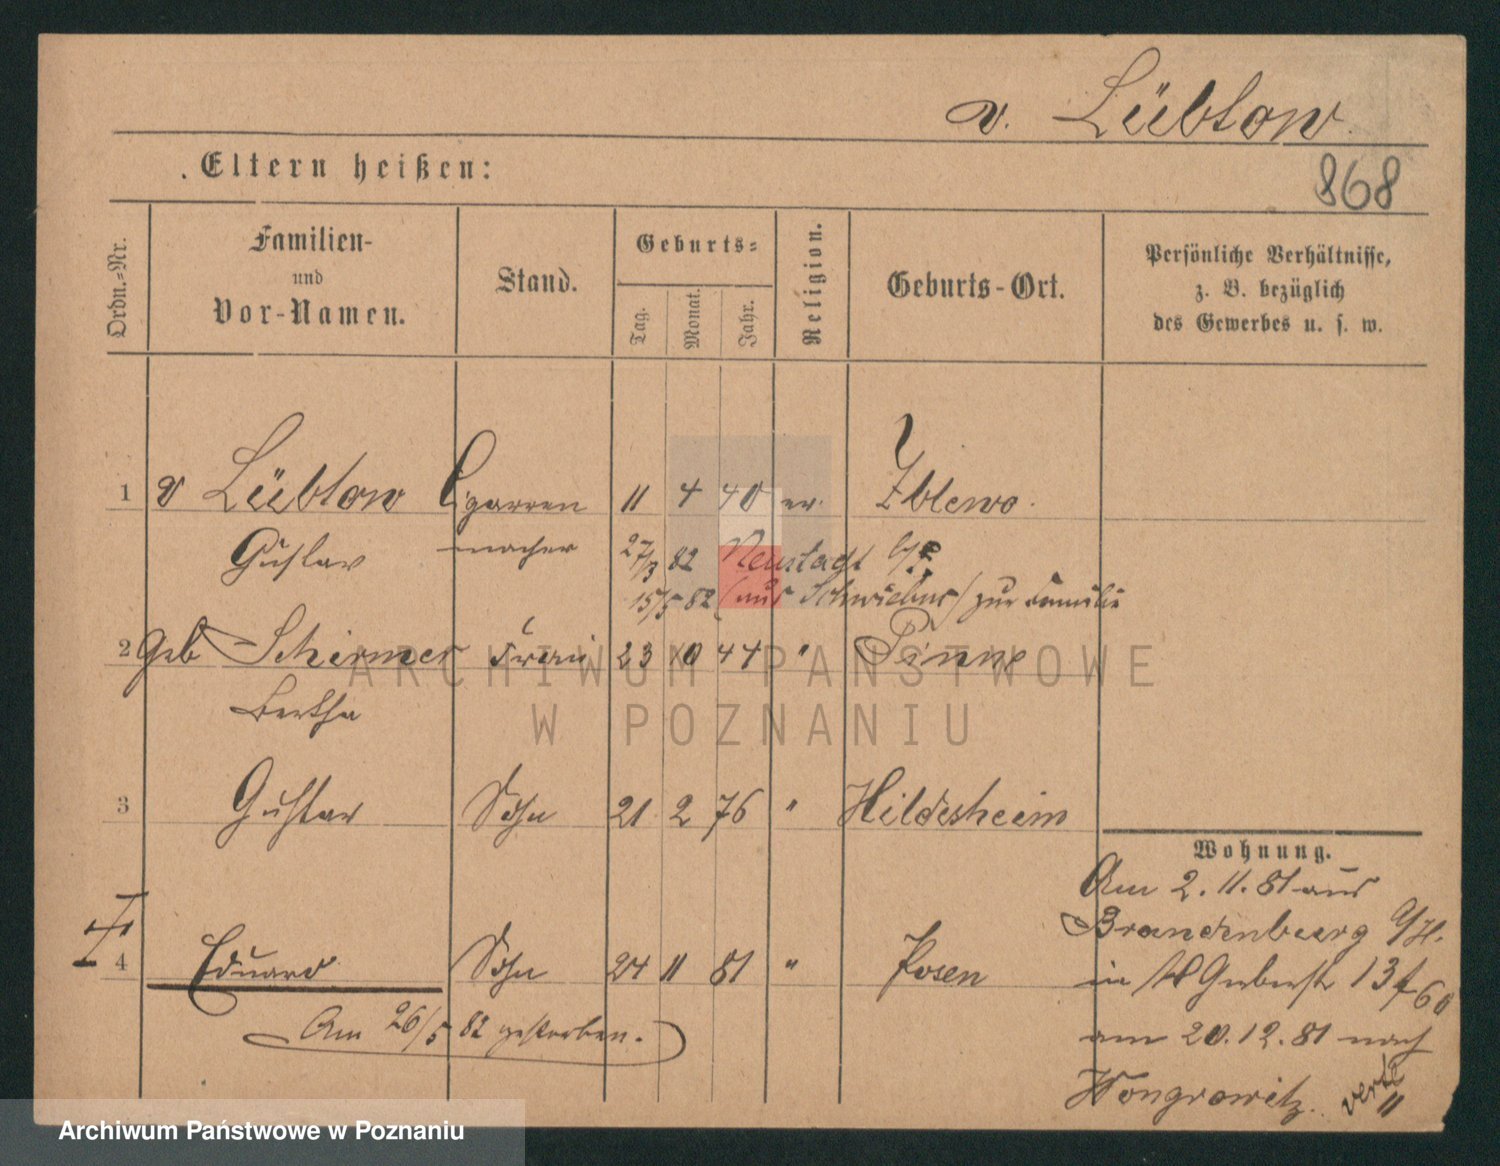 v. Lübtow
Eltern heißen:
868
Ordn.-Nr.
Familien-
und
Vor-Namen.
Stand.
Geburts-
Tag.
Monat.
Jahr.
Religion.
Geburts-Ort.
Persönliche Verhältnisse,
z. B. bezüglich
des Gewerbes u. s. w.
1 v Lübtow Cigarren 11 4 40 ev. Zblewo.
Gustav macher 27/3 82 Neustadt
15/5 82 (aus Schwiebus) zur Familie
2 Geb Schirmer Frau 23 10 44 " Pinne
Bertha
ARCHIWUM PAŃSTWOWE
W POZNANIU
3 Gustav Sohn 21 2 76 " Hildesheim
Wohnung.
Am 2. 11. 81 aus
Brandenburg a/H.
4 Eduard Sohn 24 11 81 " Posen
in 13 f 60
Am 26/5 82 gestorben.
am 20.12.81 nach
Wongrowitz. verte
Archiwum Państwowe w Poznaniu